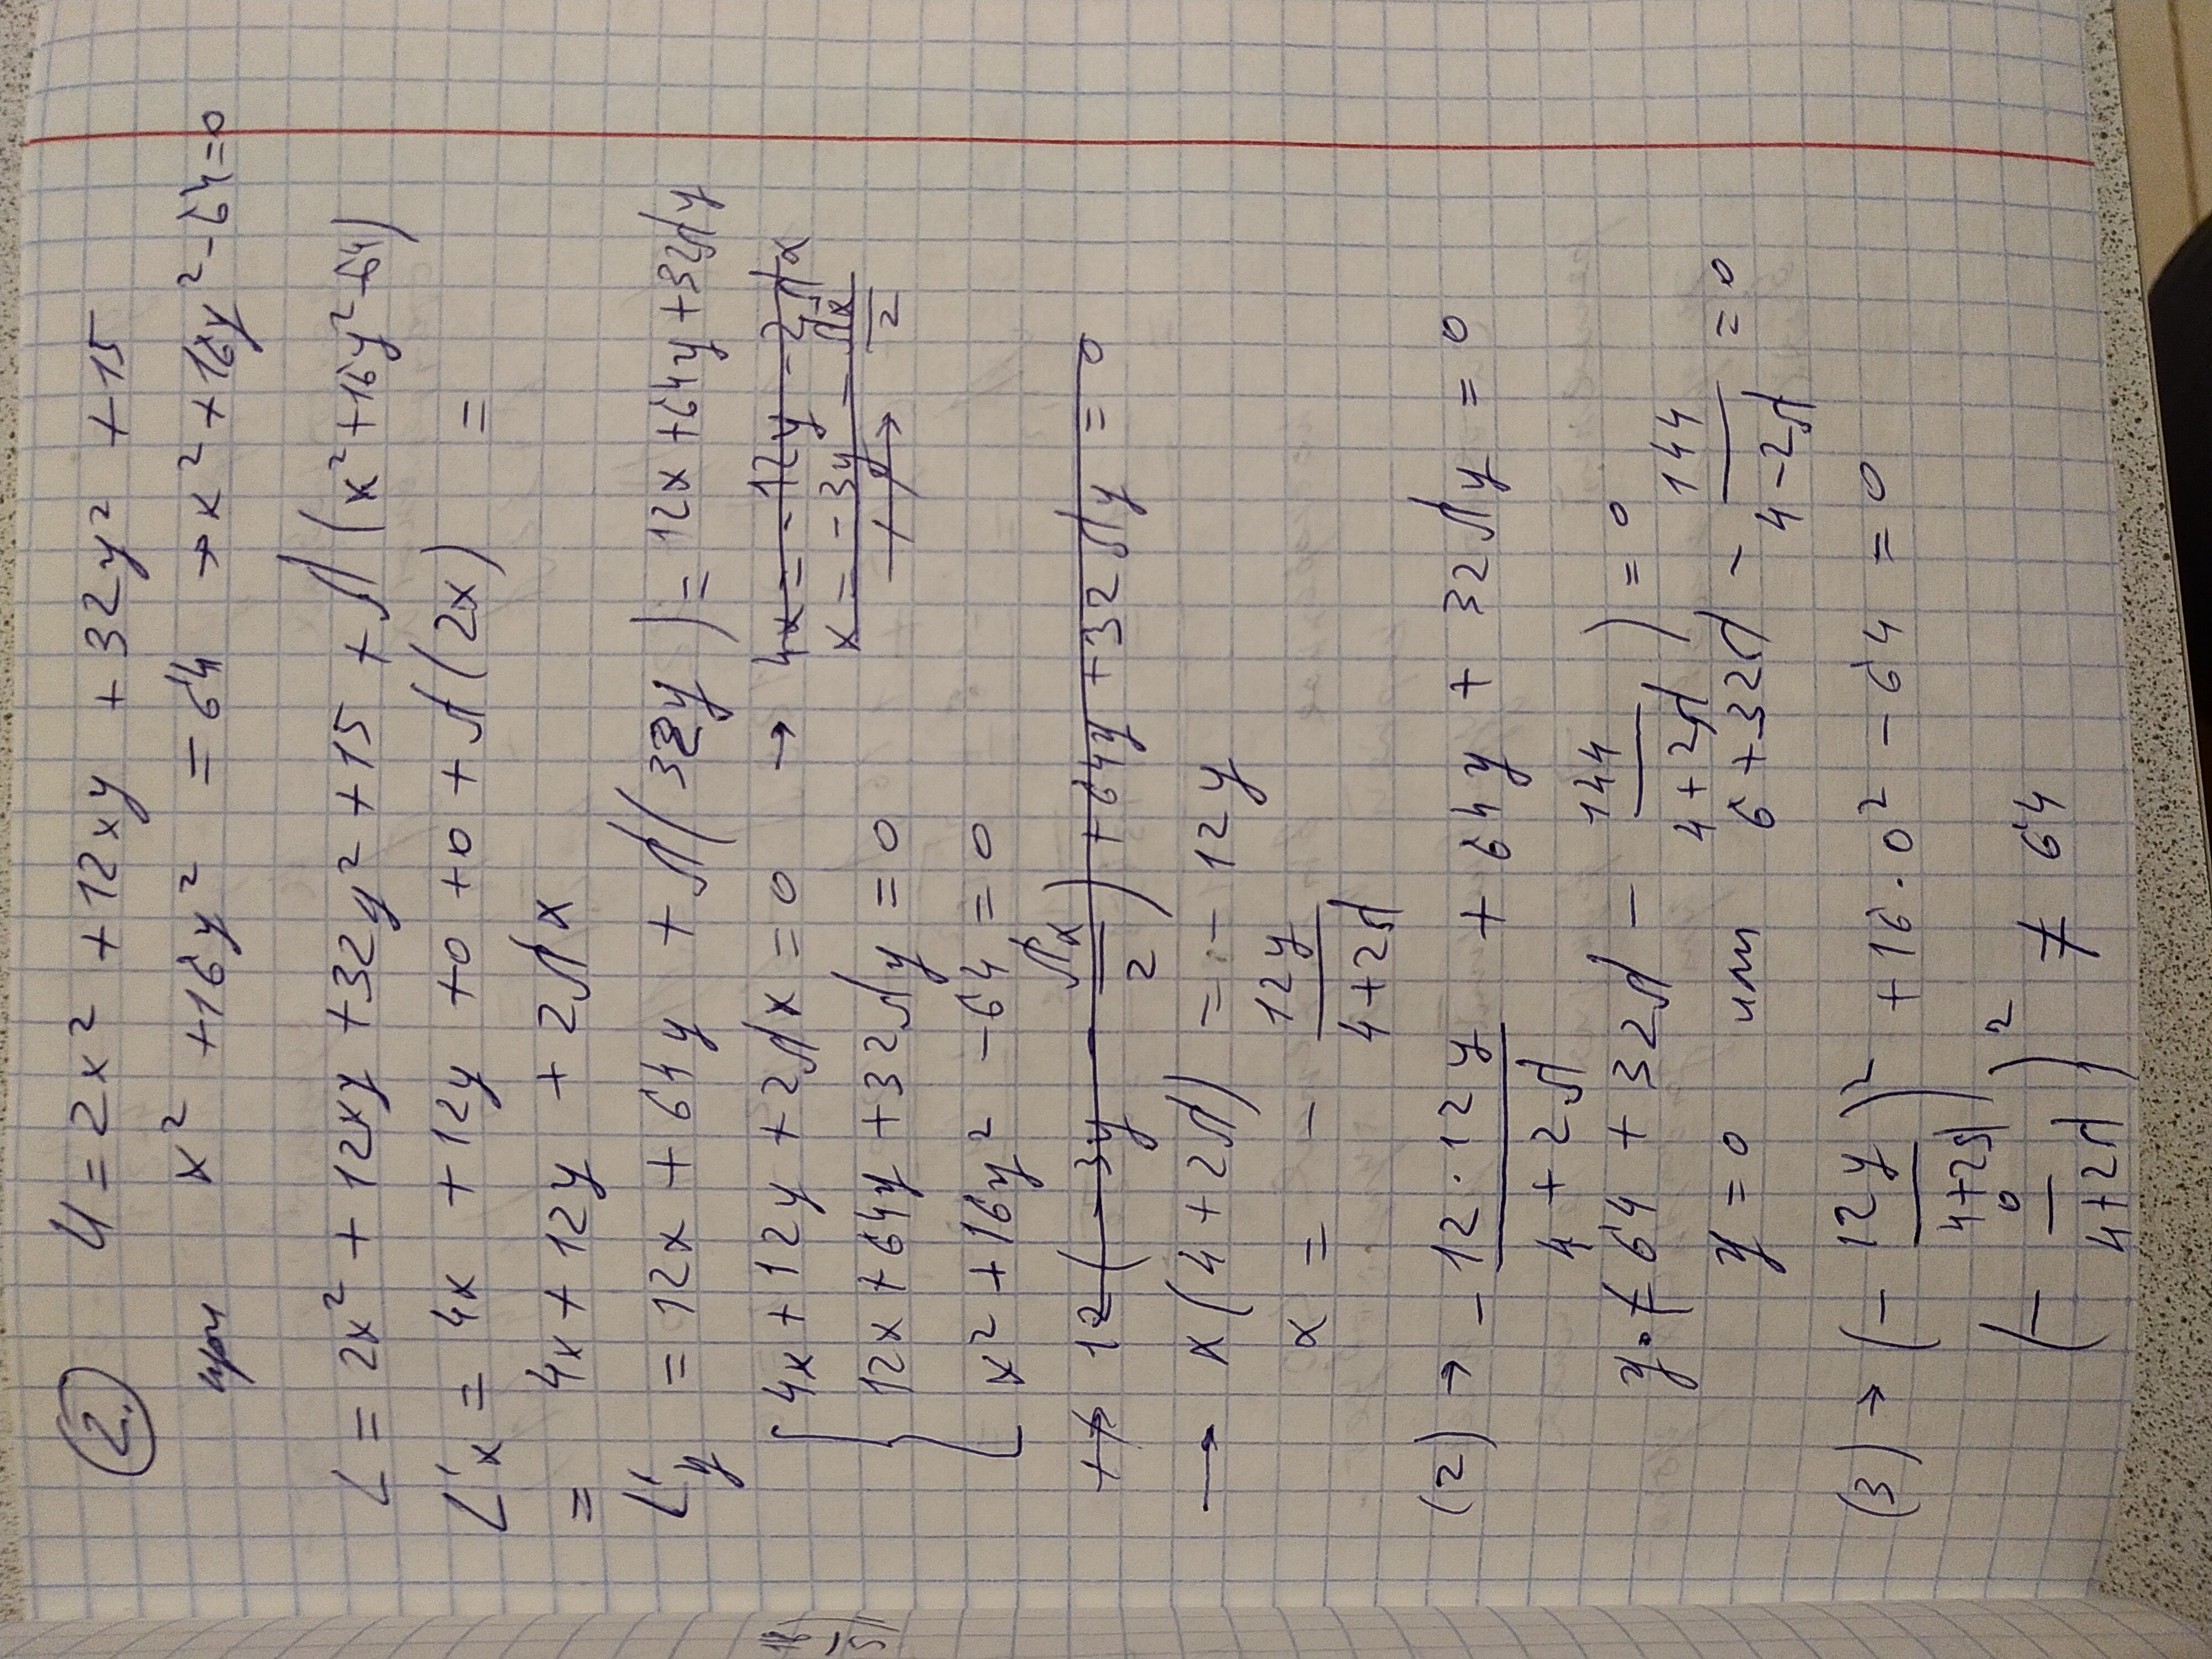 2. U = 2x² + 12xy + 32y² + 15
при x² + 16y² = 64 → x² + 16y² - 64 = 0
L = 2x² + 12xy + 32y² + 15 + λ(x² + 16y² - 64)
L'x = 4x + 12y + 0 + 0 + λ(2x) =
= 4x + 12y + 2λx
L'y = 12x + 64y + λ(32y) = 12x + 64y + 32λy
4x + 12y + 2λx = 0 → 4x = -12y - 2λx
x = -3y - λx/2
12x + 64y + 32λy = 0
x² + 16y² - 64 = 0
→ 12(-3y - λx/2) + 64y + 32λy = 0
→ x(4 + 2λ) = -12y
x = - 12y/(4+2λ)
(2) → - 12·12y/(4 + 2λ) + 64y + 32λy = 0
y·(64 + 32λ - 144/(4+2λ)) = 0
y = 0 или 6 + 32λ - 144/(4-2λ) = 0
(3) → (- 12y/(4+2λ))² + 16·0² - 64 = 0
(- 0/(4+2λ))² ≠ 64